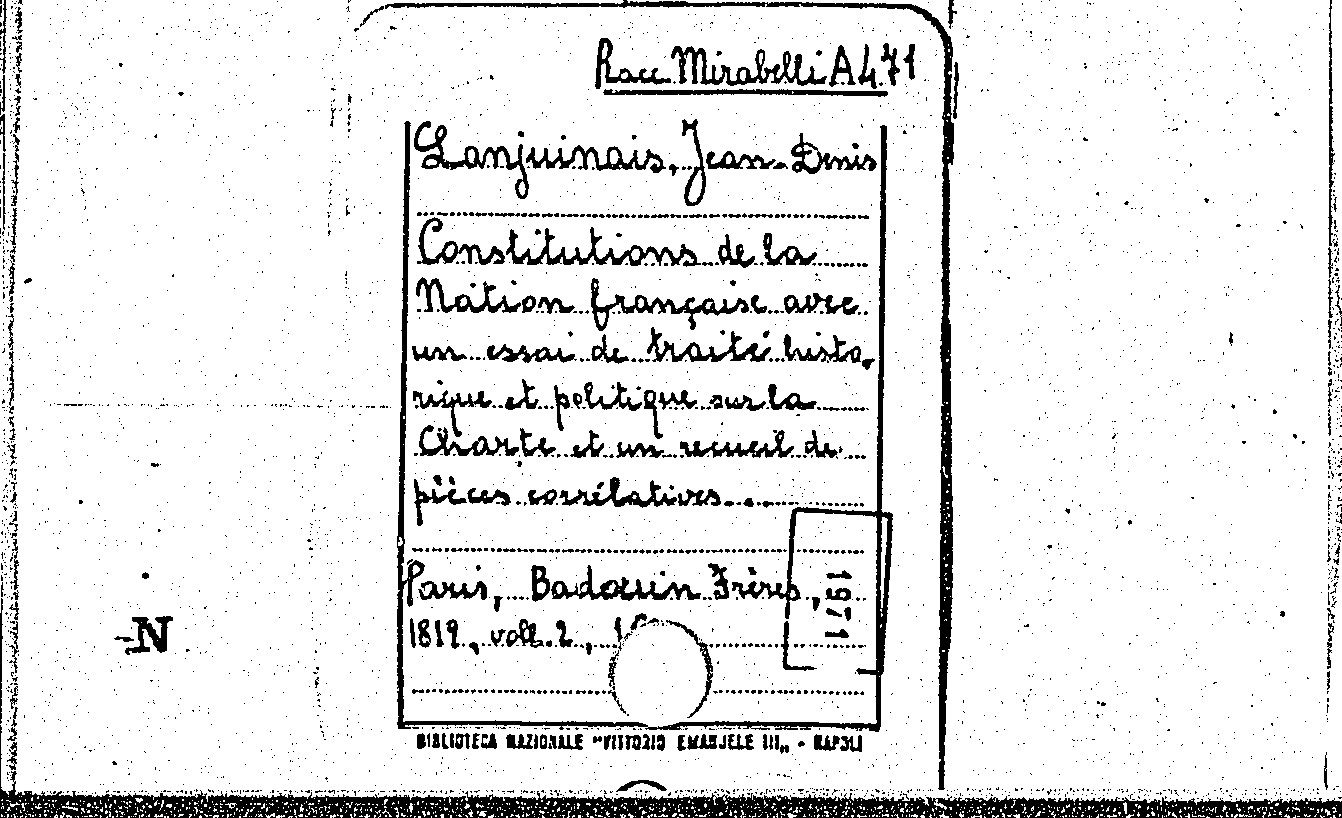 Racc. Mirabelli A 471
Lanjuinais, Jean-Denis
Constitutions de la
Nation française avec
un essai de traité histo-
rique et politique sur la
Charte et un recueil de
pièces corrélatives...
Paris, Badouin Frères,
1819, voll. 2,
1971
N
BIBLIOTECA NAZIONALE "VITTORIO EMANUELE III" - NAPOLI